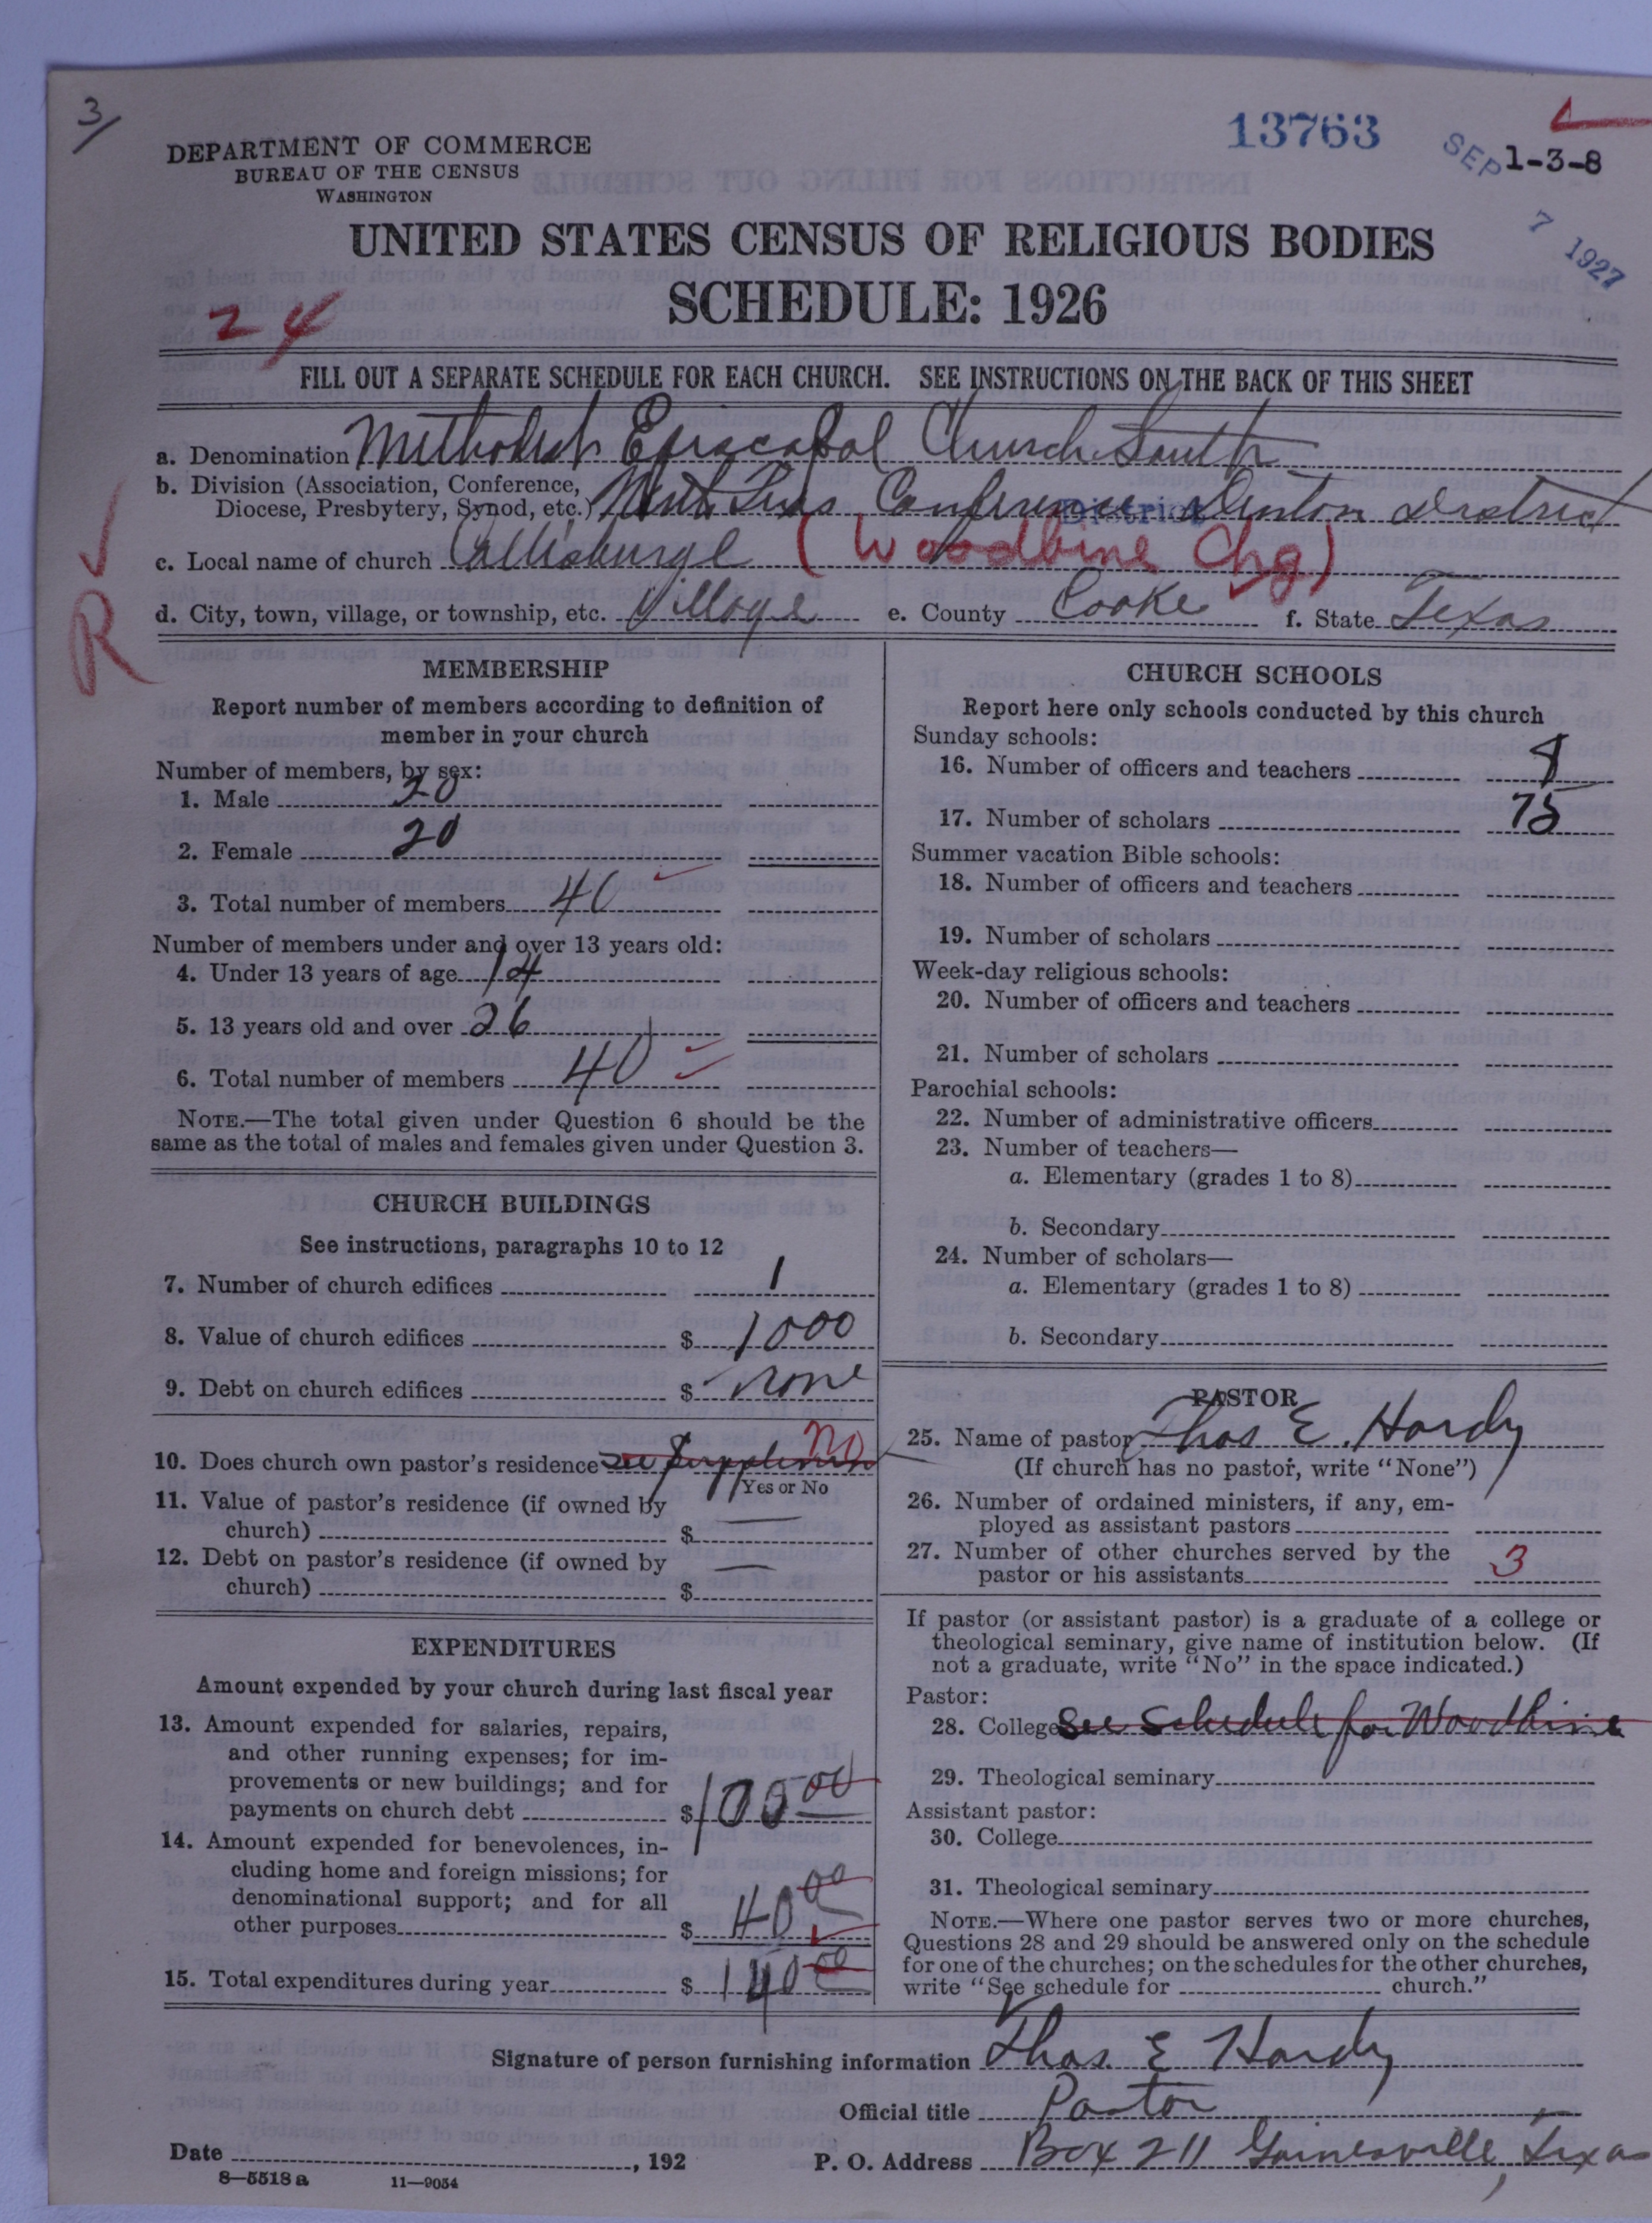 3/
13763
SEP 7 1927
1-3-8
DEPARTMENT OF COMMERCE
BUREAU OF THE CENSUS
WASHINGTON
UNITED STATES CENSUS OF RELIGIOUS BODIES
SCHEDULE: 1926
24
FILL OUT A SEPARATE SCHEDULE FOR EACH CHURCH. SEE INSTRUCTIONS ON THE BACK OF THIS SHEET
a. Denomination Methodist Episcopal Church South
b. Division (Association, Conference,
Diocese, Presbytery, Synod, etc.) North Texas Conference Denton District
District
c. Local name of church Callisburge (Woodbine Chg)
R
d. City, town, village, or township, etc. Village e. County Cooke f. State Texas
MEMBERSHIP
Report number of members according to definition of
member in your church
Number of members, by sex:
1. Male 20
2. Female 20
3. Total number of members 40
Number of members under and over 13 years old:
4. Under 13 years of age 14
5. 13 years old and over 26
6. Total number of members 40
NOTE.—The total given under Question 6 should be the
same as the total of males and females given under Question 3.
CHURCH BUILDINGS
See instructions, paragraphs 10 to 12
7. Number of church edifices 1
8. Value of church edifices $ 1000
9. Debt on church edifices $ none
10. Does church own pastor's residence see No
Yes or No
11. Value of pastor's residence (if owned by
church) $ —
12. Debt on pastor's residence (if owned by
church) $ —
EXPENDITURES
Amount expended by your church during last fiscal year
13. Amount expended for salaries, repairs,
and other running expenses; for im-
provements or new buildings; and for
payments on church debt $ 100 00
14. Amount expended for benevolences, in-
cluding home and foreign missions; for
denominational support; and for all
other purposes $ 40 00
15. Total expenditures during year $ 140 00
CHURCH SCHOOLS
Report here only schools conducted by this church
Sunday schools:
16. Number of officers and teachers 8
17. Number of scholars 75
Summer vacation Bible schools:
18. Number of officers and teachers
19. Number of scholars
Week-day religious schools:
20. Number of officers and teachers
21. Number of scholars
Parochial schools:
22. Number of administrative officers
23. Number of teachers—
a. Elementary (grades 1 to 8)
b. Secondary
24. Number of scholars—
a. Elementary (grades 1 to 8)
b. Secondary
PASTOR
25. Name of pastor Thos E. Hardy
(If church has no pastor, write "None")
26. Number of ordained ministers, if any, em-
ployed as assistant pastors
27. Number of other churches served by the
pastor or his assistants 3
If pastor (or assistant pastor) is a graduate of a college or
theological seminary, give name of institution below. (If
not a graduate, write "No" in the space indicated.)
Pastor:
28. College See Schedule for Woodbine
29. Theological seminary
Assistant pastor:
30. College
31. Theological seminary
NOTE.—Where one pastor serves two or more churches,
Questions 28 and 29 should be answered only on the schedule
for one of the churches; on the schedules for the other churches,
write "See schedule for church."
Signature of person furnishing information Thos. E Hardy
Official title Pastor
Date , 192
P. O. Address Box 211 Gainesville, Texas
8—5518 a 11—9054